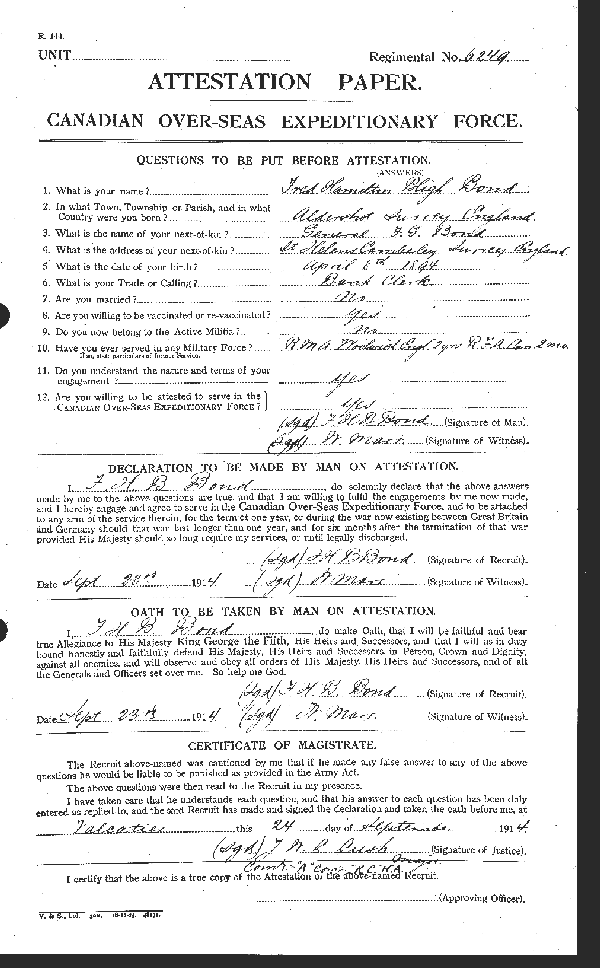 R. 141.
UNIT
Regimental No. 6249
ATTESTATION PAPER.
CANADIAN OVER-SEAS EXPEDITIONARY FORCE.
QUESTIONS TO BE PUT BEFORE ATTESTATION.
(ANSWERS)
1. What is your name? Fred Hamilton Bligh Bond
2. In what Town, Township or Parish, and in what
Country were you born? Aldershot Surrey England
3. What is the name of your next-of-kin? General F. G. Bond
4. What is the address of your next-of-kin? St Helens Camberley Surrey England
5. What is the date of your birth? April 6th 1894
6. What is your Trade or Calling? Bank Clerk
7. Are you married? No
8. Are you willing to be vaccinated or re-vaccinated? Yes
9. Do you now belong to the Active Militia? No
10. Have you ever served in any Military Force? R.M.A. Woolwich Engl 2 yrs R.F.A. 2 mo.
If so, state particulars of former Service.
11. Do you understand the nature and terms of your
engagement? Yes
12. Are you willing to be attested to serve in the
CANADIAN OVER-SEAS EXPEDITIONARY FORCE? Yes
(Sgd) F H B Bond (Signature of Man).
(Sgd) W. Marr. (Signature of Witness).
DECLARATION TO BE MADE BY MAN ON ATTESTATION.
I, F H B Bond, do solemnly declare that the above answers
made by me to the above questions are true, and that I am willing to fulfil the engagements by me now made,
and I hereby engage and agree to serve in the Canadian Over-Seas Expeditionary Force, and to be attached
to any arm of the service therein, for the term of one year, or during the war now existing between Great Britain
and Germany should that war last longer than one year, and for six months after the termination of that war
provided His Majesty should so long require my services, or until legally discharged.
(Sgd) F H B Bond (Signature of Recruit).
Date Sept 23rd 1914 (Sgd) W Marr (Signature of Witness).
OATH TO BE TAKEN BY MAN ON ATTESTATION.
I, F H B Bond, do make Oath, that I will be faithful and bear
true Allegiance to His Majesty King George the Fifth, His Heirs and Successors, and that I will as in duty
bound honestly and faithfully defend His Majesty, His Heirs and Successors in Person, Crown and Dignity,
against all enemies, and will observe and obey all orders of His Majesty, His Heirs and Successors, and of all
the Generals and Officers set over me. So help me God.
(Sgd) F H B Bond (Signature of Recruit).
Date Sept 23rd 1914 (Sgd) W. Marr. (Signature of Witness).
CERTIFICATE OF MAGISTRATE.
The Recruit above-named was cautioned by me that if he made any false answer to any of the above
questions he would be liable to be punished as provided in the Army Act.
The above questions were then read to the Recruit in my presence.
I have taken care that he understands each question, and that his answer to each question has been duly
entered as replied to, and the said Recruit has made and signed the declaration and taken the oath before me, at
Valcartier this 24 day of September 1914.
(Sgd) (Signature of Justice).
Major
I certify that the above is a true copy of the Attestation of the above-named Recruit.
(Approving Officer).